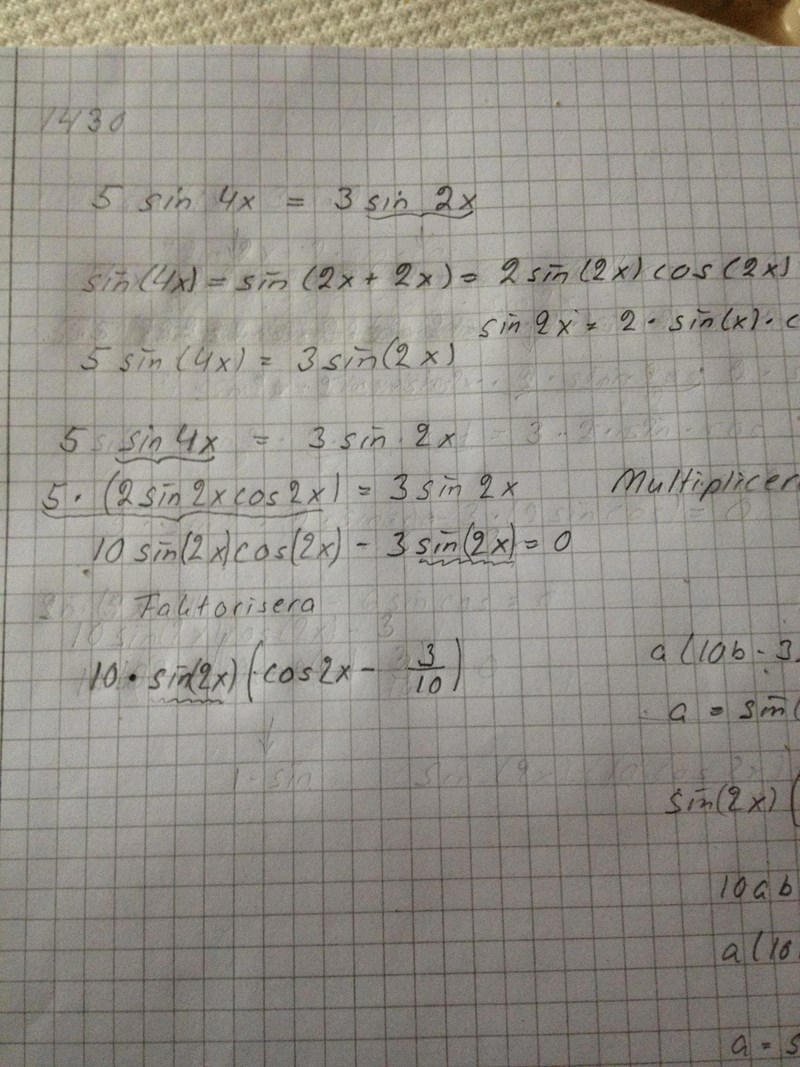 1430
5 sin 4x = 3 sin 2x
sin(4x) = sin(2x + 2x) = 2 sin(2x) cos(2x)
sin 2x = 2 · sin(x) · c
5 sin(4x) = 3 sin(2x)
5 sin 4x = 3 sin 2x
5 · (2 sin 2x cos 2x) = 3 sin 2x Multiplicer
10 sin(2x) cos(2x) - 3 sin(2x) = 0
Faktorisera
10 · sin(2x) (cos 2x - 3/10)
a(10b - 3
a = sin(
sin(2x) (
10ab
a(10
a = s